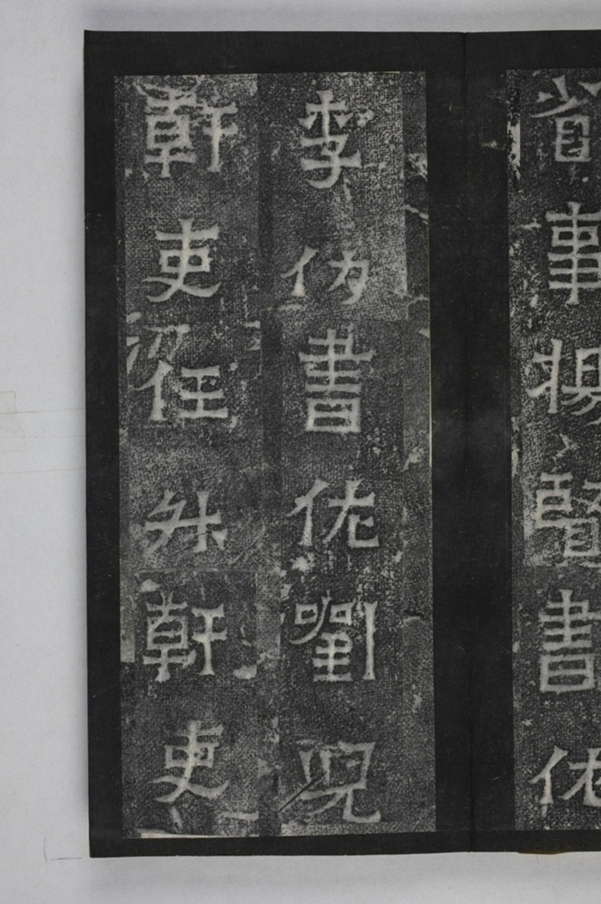 省事楊賢書佐
李仂書佐劉
幹吏任升幹吏